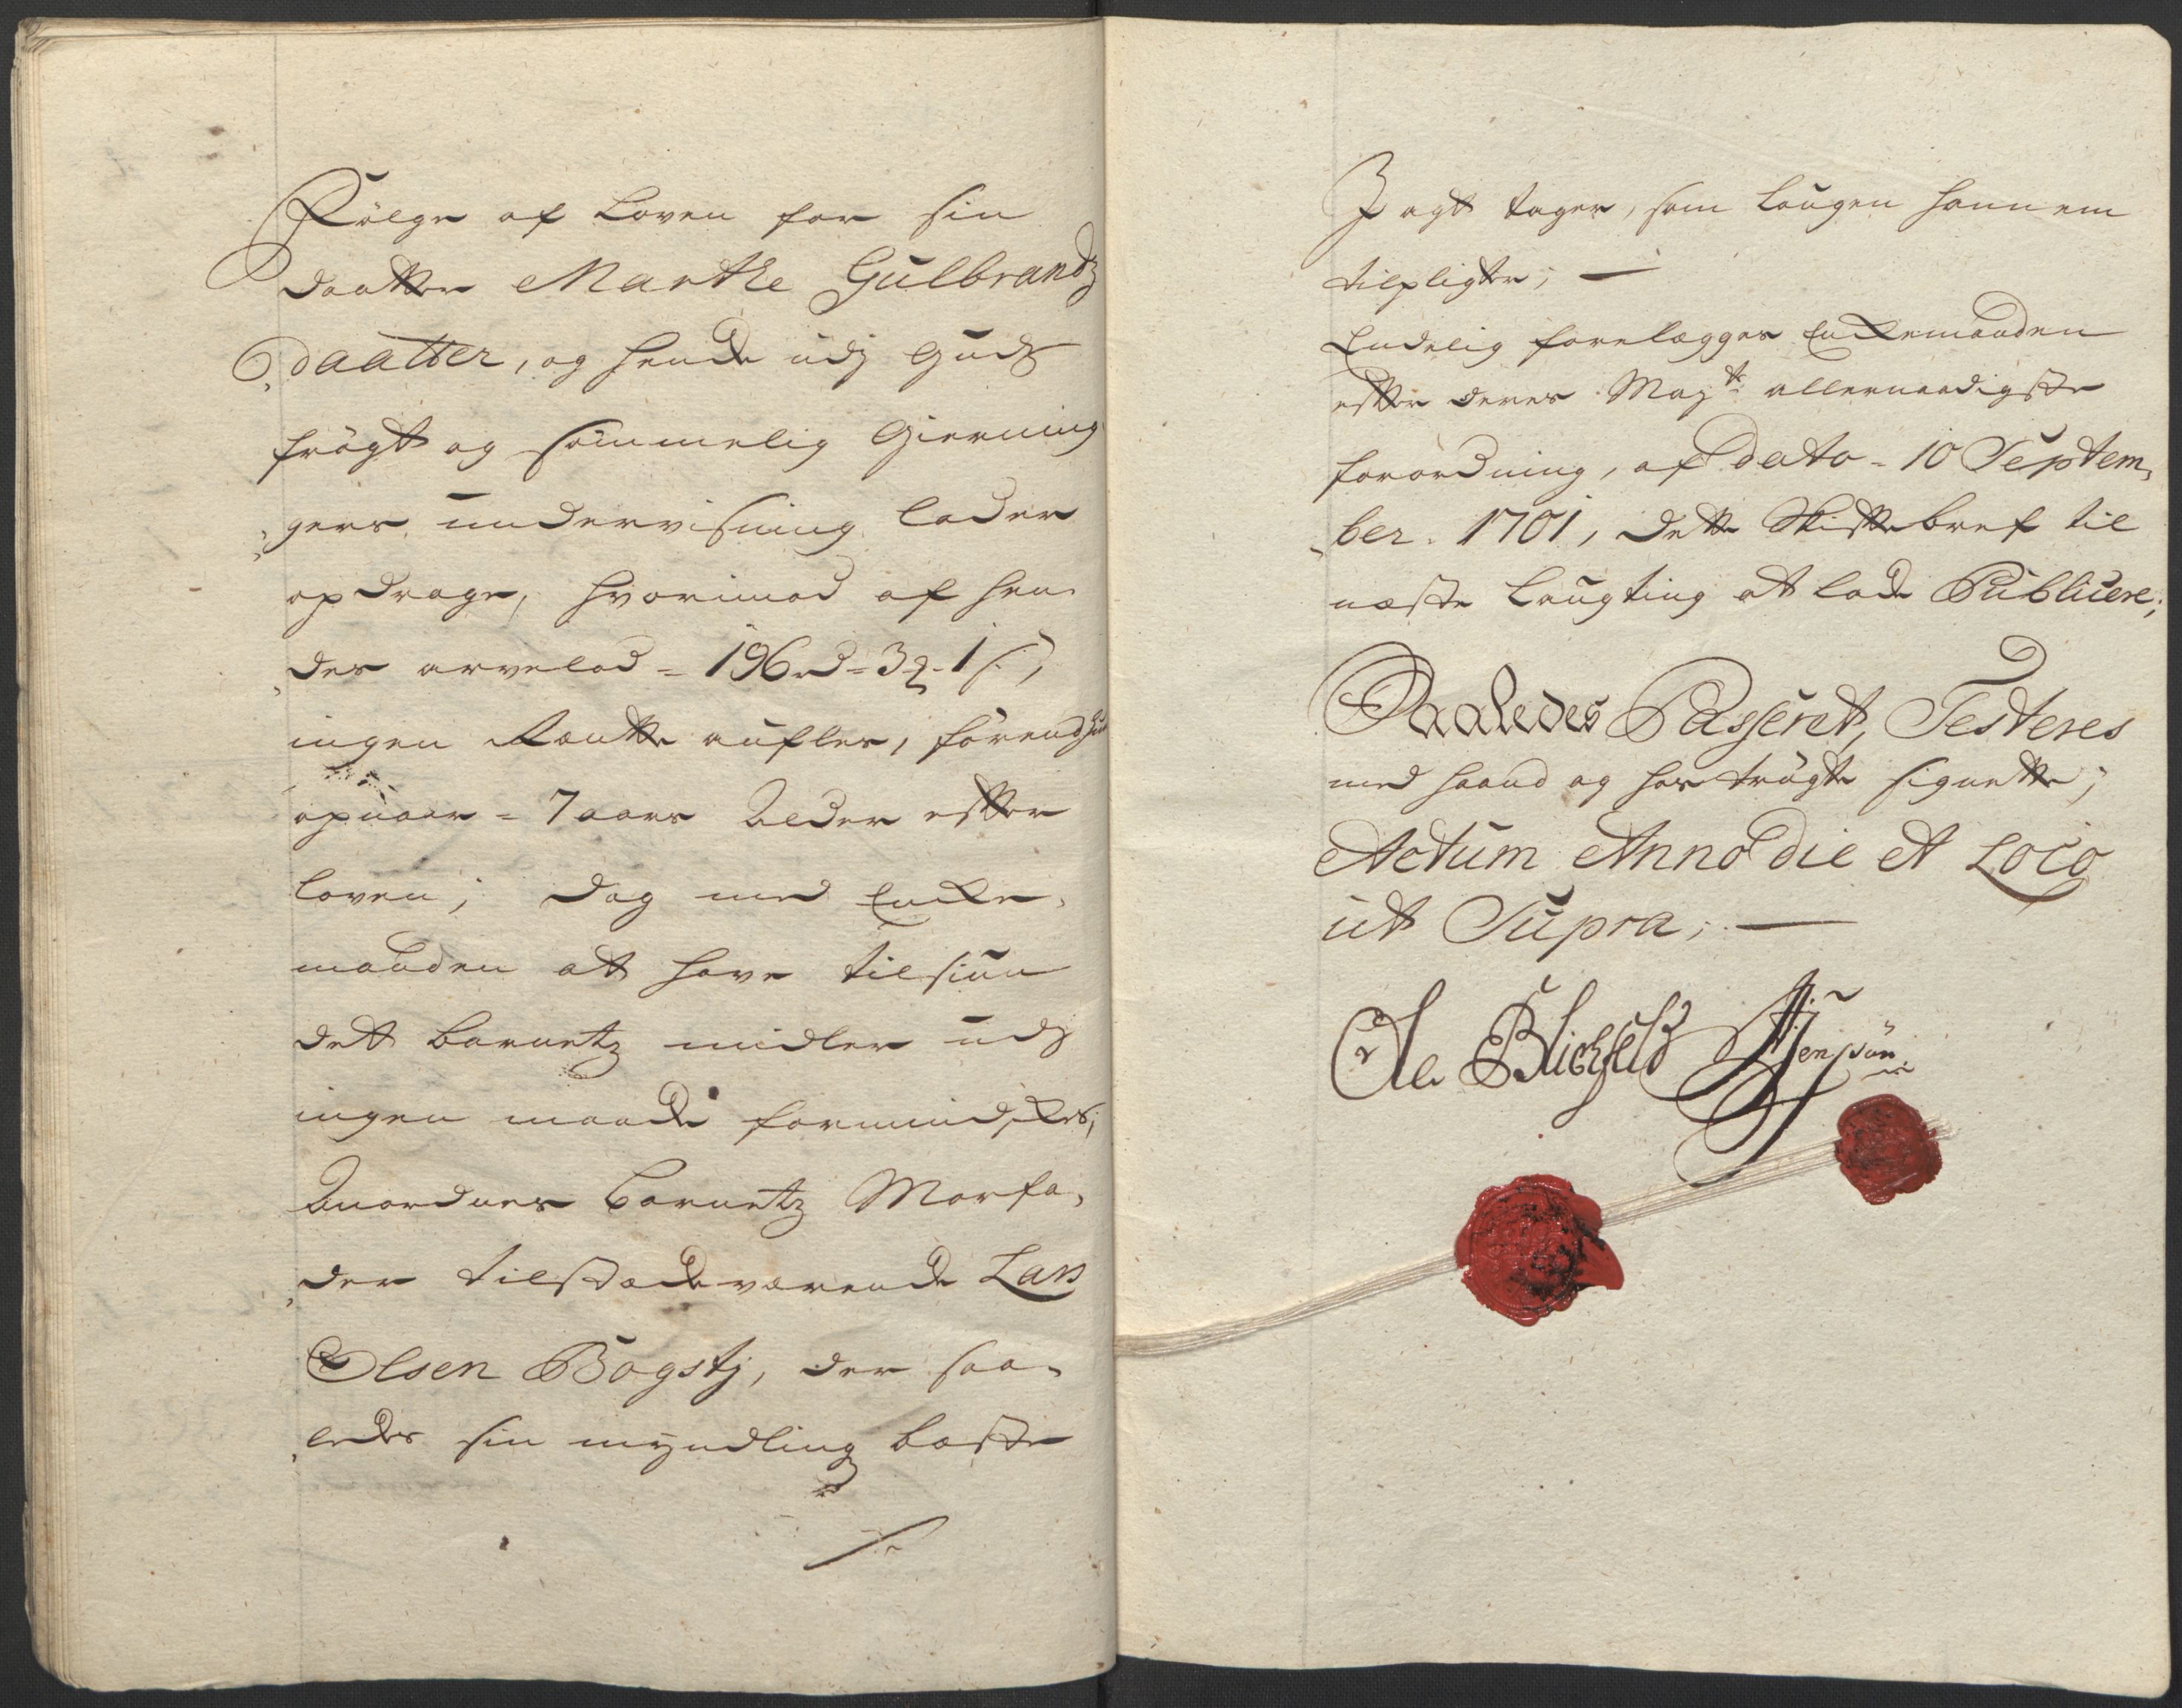 Følge af Loven for sin
daatter Marthe Gulbrandtz
daatter, og hende udj Gudz
frögt og sömmelig Gierning„
„gers undervisning lader
opdrage, hvorimod af hen„
„des arvelod = 196 rd = 3 ꝗ. 1 s;
ingen Rentte aufles, förend hun
opnaar = 7 aars Alder effter
loven; dog med Encke„
manden at have tilsiun
det barnetz midler udj
ingen maade formindskes;
Anordnes barnetz Morfa„
„der tilstædeværende Lars
Olsen Bogstj, der saa„
„ledes sin myndling beste
I agt tager, som Laugen hannem
tilpligter; —
Endelig forelægges Enckemanden
effter deres Mayt. allernaadigste
forordning, af dato = 10 Septem„
„ber. 1701, dette Skifftebref til
neste Laugting at lade Publicere;
Saaledes Passeret, Testeres
med haand og hoströgte signetter;
Actum Anno die et Loco
ut Supra; —
Ole Blichfeld Jenssøn